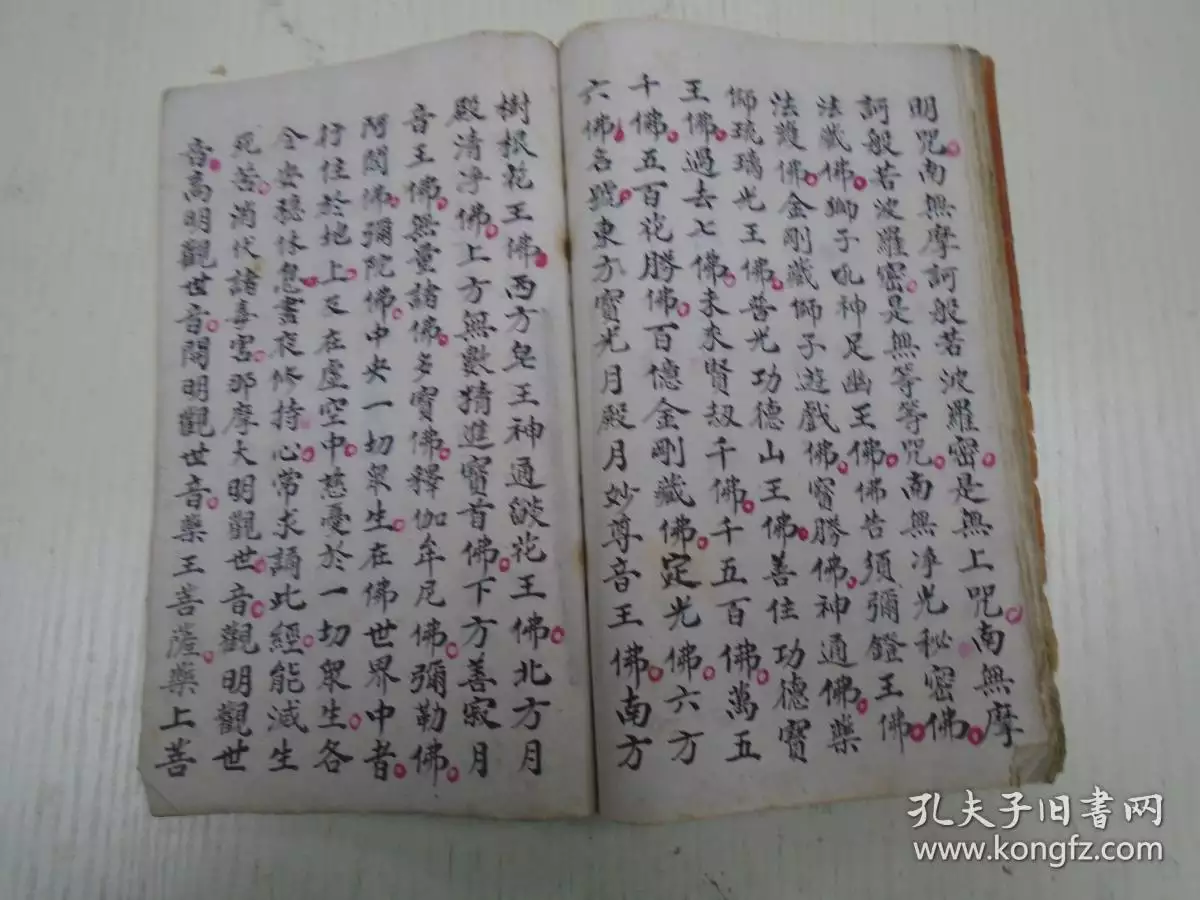 明咒南無摩訶般若波羅密是無上咒南無摩
訶般若波羅密是無等等咒南無淨光秘密佛
法藏佛獅子吼神足幽王佛佛告須彌鐙王佛
法護佛金剛藏師子遊戲佛寳勝佛神通佛藥
師琉璃光王佛普光功德山王佛善住功德寳
王佛過去七佛未來賢刼千佛千五百佛萬五
千佛五百花勝佛百億金剛藏佛定光佛六方
六佛名號東方寳光月殿月妙尊音王佛南方
樹根花王佛西方皂王神通燄花王佛北方月
殿清淨佛上方無數精進寳首佛下方善寂月
音王佛無量諸佛多寳佛釋伽牟尼佛彌勒佛
阿閦佛彌陀佛中央一切衆生在佛世界中者
行住於地上又在虛空中慈憂於一切衆生各
令安穩休息晝夜修持心常求誦此經能滅生
死苦消伏諸毒害那摩大明觀世音觀明觀世
音高明觀世音開明觀世音藥王菩薩藥上菩
孔夫子旧書网
www.kongfz.com